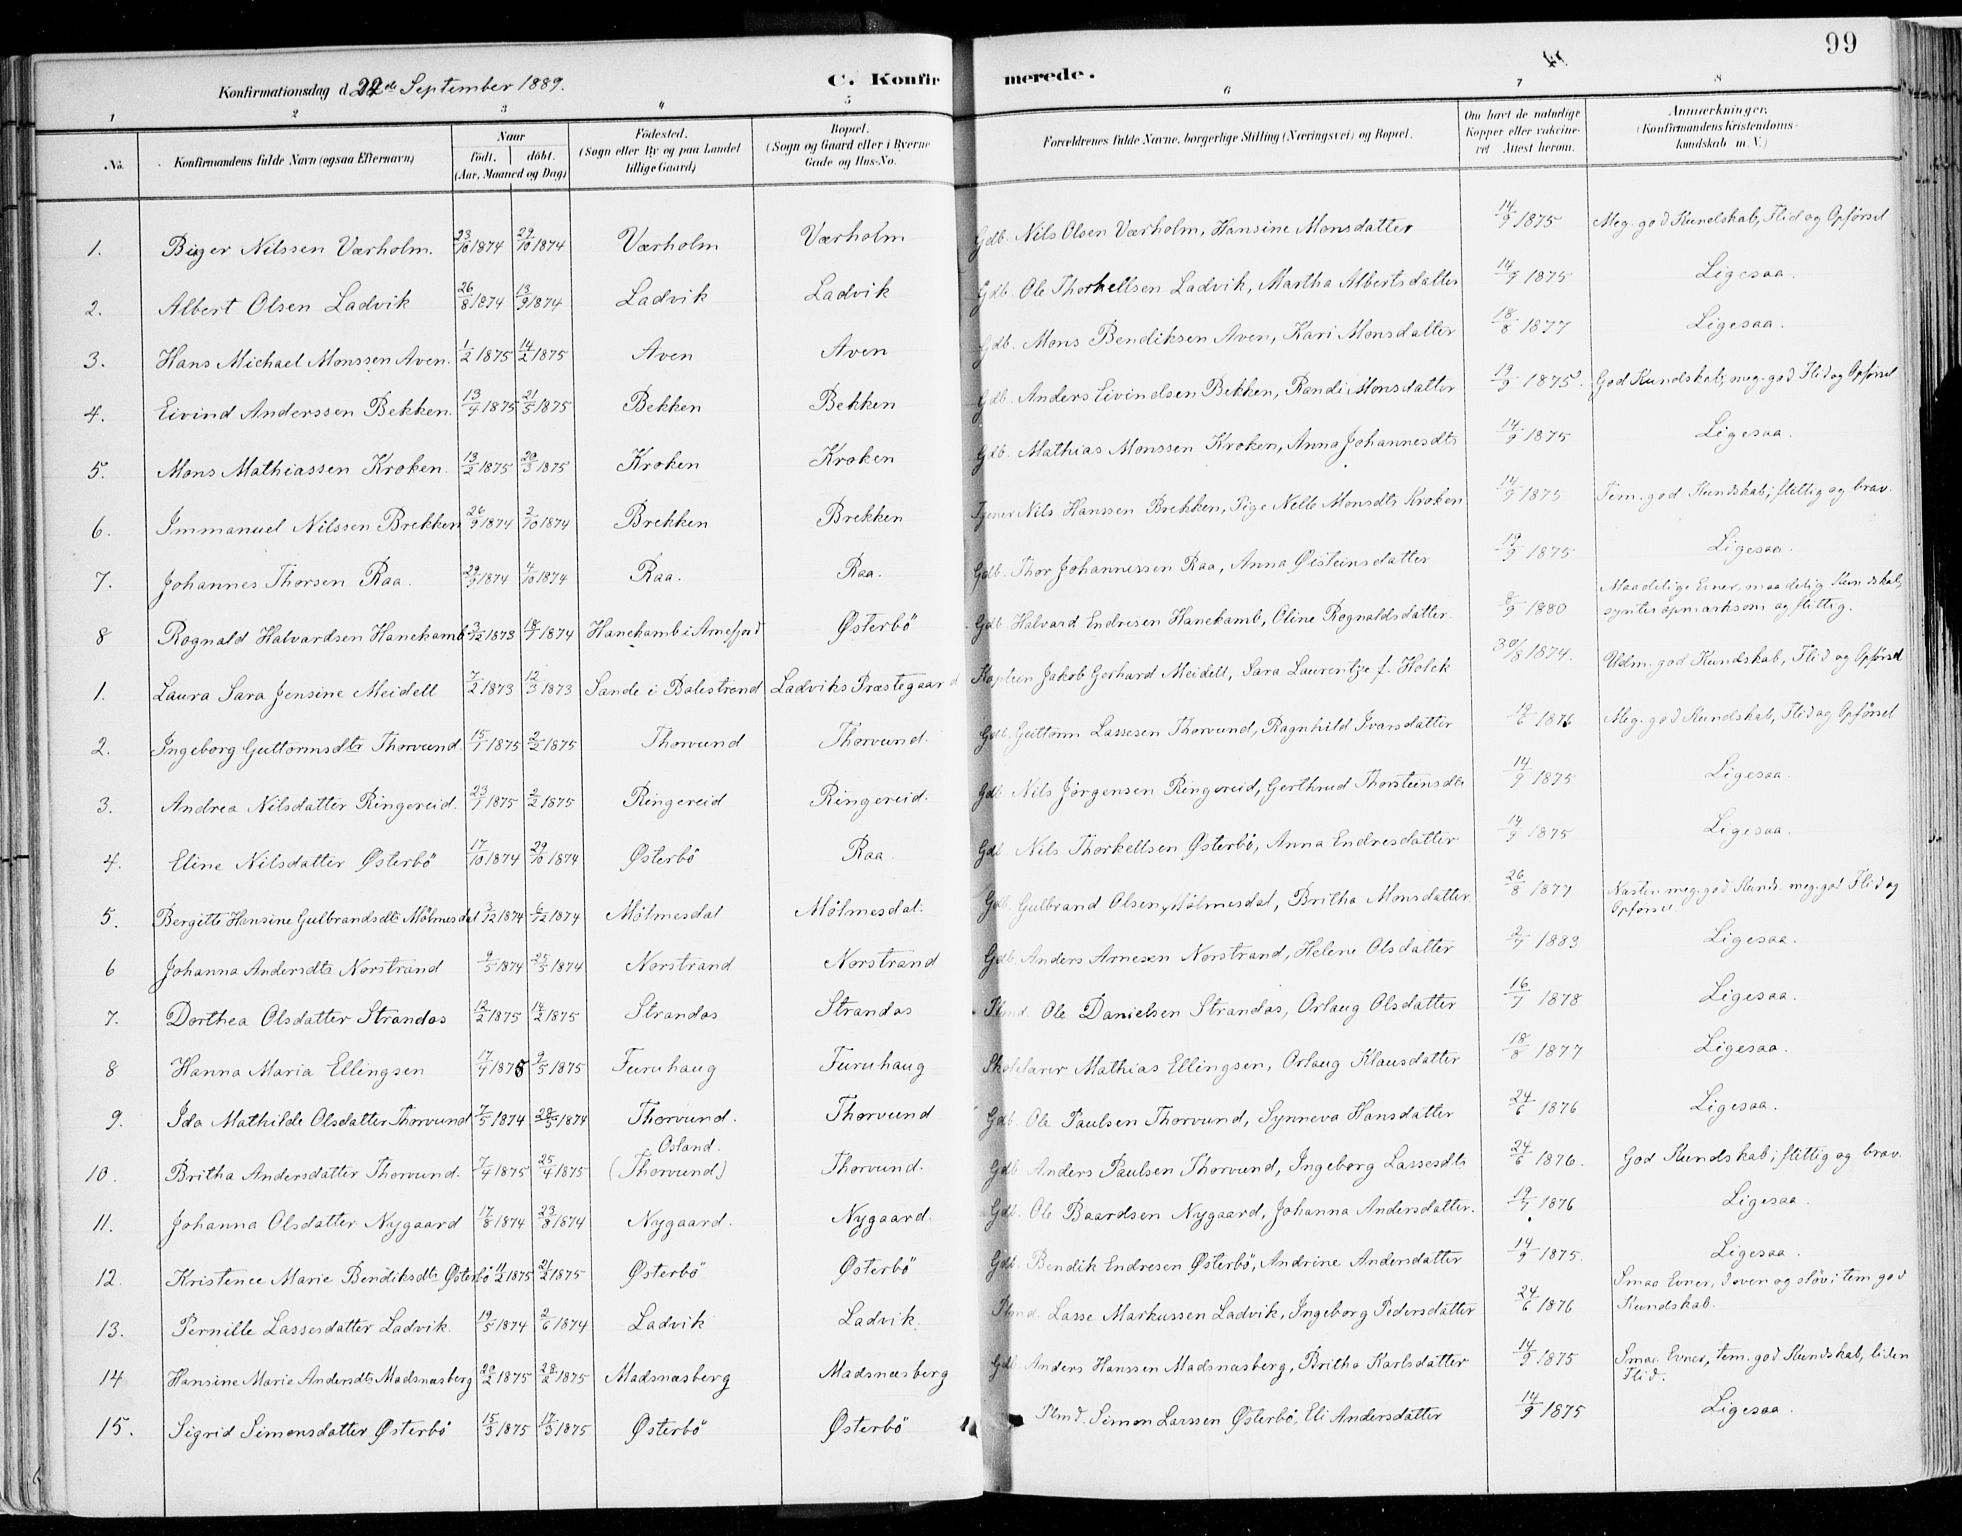 99
Konfirmationsdag d. 22de September 1889.
C. Konfirmerede.
1 2 3 4 5 6 7 8
No.
Konfirmandens fulde Navn (ogsaa Efternavn)
Naar
födt. döbt.
(Aar, Maaned og Dag)
Födested.
(Sogn eller By og paa Landet
tillige Gaard)
Bopæl.
(Sogn og Gaard eller i Byerne
Gade og Hus-No.
Forældrenes fulde Navne, borgerlige Stilling (Næringsvei) og Bopæl.
Om havt de naturlige
Kopper eller vakcine-
ret Attest herom.
Anmærkninger.
(Konfirmandens Kristendoms-
kundskab m. V.)
1. Birger Nilssen Værholm. 23/10 1874 29/10 1874 Værholm Værholm Gdb. Nils Olsen Værholm, Hansine Monsdatter 14/9 1875 Meg. god Kundskab, Flid og Opförsel
2. Albert Olsen Ladvik 26/8 1874 13/9 1874 Ladvik Ladvik Gdb. Ole Thorkellsen Ladvik, Martha Albertsdatter 14/9 1875 Ligesaa.
3. Hans Michael Monssen Aven. 1/2 1875 14/2 1875 Aven Aven Gdb. Mons Bendiksen Aven, Kari Monsdatter 18/8 1877 Ligesaa.
4. Eivind Anderssen Bekken. 13/4 1875 21/5 1875 Bekken Bekken Gdb. Anders Eivindsen Bekken, Randi Monsdatter 19/9 1875. God Kundskab, meg. god Flid og Opförsel
5. Mons Mathiassen Kroken. 13/2 1875 20/3 1875 Kroken Kroken Gdb. Mathias Monssen Kroken, Anna Johannesdtr 14/9 1875 Ligesaa.
6. Immanuel Nilssen Brekken 26/9 1874 2/10 1874 Brekken Brekken Tjener Nils Hanssen Brekken, Pige Nelle Monsdtr Kroken 14/9 1875 Tem. god Kundskab; flittig og brav.
7. Johannes Thorsen Raa. 29/9 1874 4/10 1874 Raa. Raa. Gdb. Thor Johannessen Raa, Anna Øisteinsdatter 19/9 1875 Ligesaa.
8 Rognald Halvardsen Hanekamb 3/12 1873 18/7 1874 Hanekamb i Arnefjord Østerbö Gdb. Halvard Endresen Hanekamb, Oline Rognaldsdatter. 8/9 1880 Maadelige Evner, maadelig Kundskab,
syntes opmærksom og flittig.
1. Laura Sara Jensine Meidell 7/2 1873 12/3 1873 Sande i Balestrand Ladviks Præstegaard Kaptein Jakob Gerhard Meidell, Sara Laurentze f. Holck 30/8 1874. Udm. god Kundskab, Flid og Opførsel
2. Ingeborg Guttormsdtr Thorvund. 15/1 1875 2/2 1875 Thorvund Thorvund. Gdb. Guttorm Lassesen Thorvund, Ragnhild Ivarsdatter 19/6 1876 Meg. god Kundskab, Flid og Opførsel
3. Andrea Nilsdatter Ringereid. 23/1 1875 2/2 1875 Ringereid Ringereid. Gdb. Nils Jørgensen Ringereid, Gerthrud Thorsteinsdtr 14/9 1875 Ligesaa.
4. Eline Nilsdatter Østerbö 17/10 1874 29/10 1874 Østerbö Raa. Gdb Nils Thorkellsen Østerbö, Anna Endresdatter 14/9 1875 Ligesaa.
5. Bergitte Hansine Gulbrandsdtr Mölmesdal 3/12 1874 6/12 1874 Mölmesdal Mölmesdal. Gdb. Gulbrand Olsen Mölmesdal, Britha Monsdatter. 26/8 1877 Næsten meg. god Kunds. meg. god Flid og
Opførsel.
6 Johanna Andersdtr Norstrand 9/5 1874 25/5 1874 Norstrand Norstrand Gdb. Anders Arnesen Norstrand, Helene Olsdatter 2/7 1883 Ligesaa.
7. Dorthea Olsdatter Strandos 12/2 1875 14/2 1875 Strandos Strandos Plmd. Ole Danielsen Strandos, Orlaug Olsdatter 16/7 1878 Ligesaa.
8 Hanna Maria Ellingsen 17/4 1875 9/5 1875 Furuhaug Furuhaug Skolelærer Mathias Ellingsen, Orlaug Klausdatter 18/8 1877 Ligesaa.
9. Ida Mathilde Olsdatter Thorvund 7/5 1874 28/5 1874 Thorvund. Thorvund Gdb. Ole Paulsen Thorvund, Synneva Hansdatter 24/6 1876 Ligesaa.
Osland.
10. Britha Andersdatter Thorvund. 7/4 1875 25/4 1875 (Thorvund) Thorvund. Gdb Anders Paulsen Thorvund, Ingeborg Lassesdtr 24/6 1876. God Kundskab; flittig og brav.
11. Johanna Olsdatter Nygaard 17/8 1874 23/8 1874 Nygaard. Nygaard. Gdb. Ole Baardsen Nygaard, Johanna Andersdatter. 19/7 1876 Ligesaa.
12. Kristence Marie Bendiksdtr Østerbö 11/2 1875 21/2 1875 Østerbö Østerbö Gdb. Bendik Endresen Østerbö, Andrine Andersdatter 14/9 1875. Ligesaa.
13. Pernille Lassesdatter Ladvik. 19/5 1874 2/6 1874 Ladvik Ladvik. Plmd. Lasse Markussen Ladvik, Ingeborg Pedersdatter 24/6 1876 Smaa Evner, doven og slöv; tem. god
Kundskab.
14 Hansine Marie Andersdtr Madsnæsberg 20/2 1875 28/2 1875 Madsnæsberg Madsnæsberg Gdb Anders Hanssen Madsnæsberg, Britha Karlsdatter 14/9 1875 Smaa Evner, tem. god Kundskab, liden
Flid.
15. Sigrid Simonsdatter Østerbö 15/3 1875 17/3 1875 Østerbö Østerbö Plmd. Simon Larssen Østerbö, Eli Andersdatter 14/9 1875 Ligesaa.